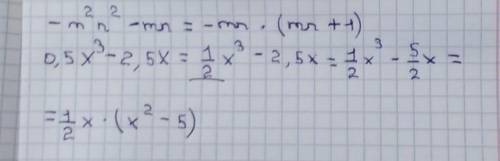 -m²n² - mn = -mn · (mn + 1)
0,5x³ - 2,5x = 1/2 x³ - 2,5x = 1/2 x³ - 5/2 x =
= 1/2 x · (x² - 5)